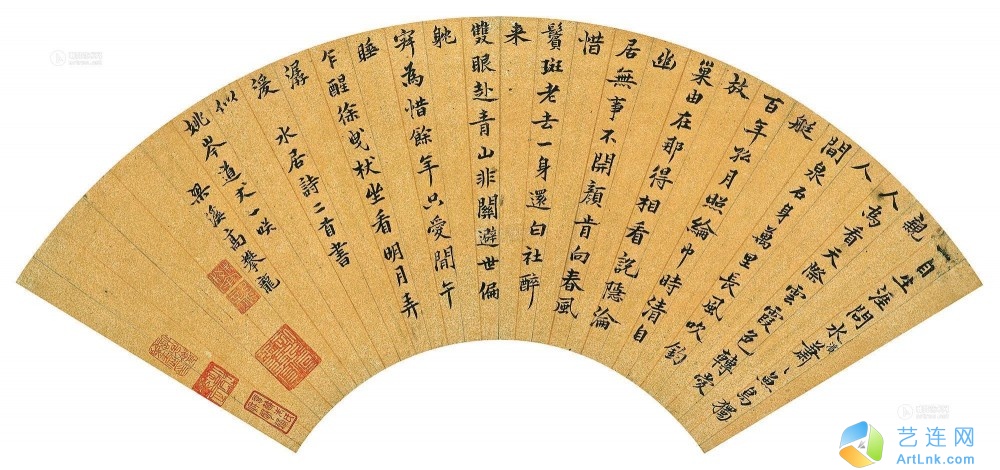 自生涯問水濱蕭〻魚鳥獨
親
人為看天際雲霞色轉愛
人
間泉石身萬里長風吹釣
艇
百年孤月照綸巾時清自
放
巢由在那得相看說隱淪
幽
居無事不開顏肯向春風
惜
鬢斑老去一身還白社醉
来
雙眼赴青山非關避世偏
躭
寂為惜餘年只愛閒午
睡
乍醒徐曳杖坐看明月弄
潺
湲
水居詩二首書
似
姚岑道丈一咲
梁溪高攀龍
艺连网
ArtLnk.com